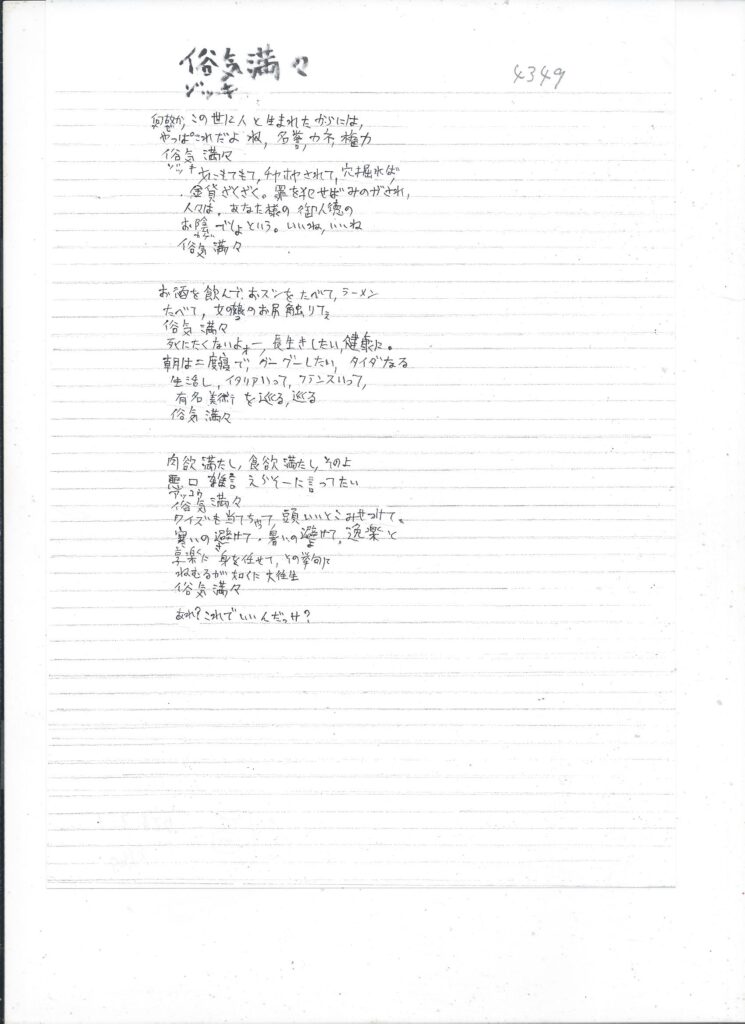 俗気満々
ゾッキ
4349
何故か、この世に人と生まれたからには、
やっぱこれだよね、名誉、カネ、権力
俗気満々
ゾッキ
女にもてもて、チヤホヤされて、穴掘れば、
金貨ざくざく。罪を犯せばみのがされ、
人々は、あなた様の御人徳の
お陰でしょという。いいね、いいね
カゲ
俗気満々
お酒を飲んで、おスシをたべて、ラーメン
たべて、女の娘のお尻触りてぇ
俗気満々
死にたくないよォー、長生きしたい、健康に。
朝は二度寝で、グーグーしたい、タイダなる
生活し、イタリアいって、フランスいって、
有名美術を巡る、巡る
俗気満々
肉欲満たし、食欲満たし、その上
悪口雑言えらそーに言ってたい
アッコウ
俗気満々
クイズも当てちゃって、頭いいとこみせつけて。
寒いの避けて・暑いの避けて、逸楽と
享楽に身を任せて、その挙句に
ねむるが如くに大往生
俗気満々
あれ？これでいいんだっけ？